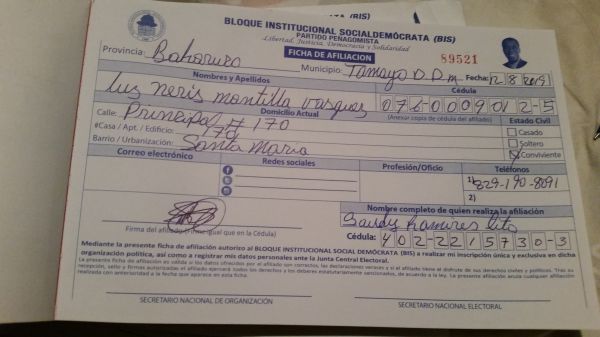 BLOQUE INSTITUCIONAL SOCIALDEMÓCRATA (BIS)
PARTIDO PEÑAGOMISTA
Libertad, Justicia, Democracia y Solidaridad
FICHA DE AFILIACION
89521
Provincia: Bahoruco Municipio: Tamayo D.D.M. Fecha: 12/8/2019
Nombres y Apellidos Cédula
Luz neris montilla Vasquez 076-0009012-5
Domicilio Actual (Anexar copia de cédula del afiliado)
Calle: Principal # 170
#Casa / Apt. / Edificio: 170
Barrio / Urbanización: Santa Maria
Estado Civil
Casado
Soltero
Conviviente
Correo electrónico Redes sociales Profesión/Oficio Teléfonos
1) 829-190-8091
2)
Nombre completo de quien realiza la afiliación
Sandy Ramires lito
Firma del afiliado (Firme igual que en la Cédula)
Cédula: 402-2215730-3
Mediante la presente ficha de afiliación autorizo al BLOQUE INSTITUCIONAL SOCIAL DEMÓCRATA (BIS) a realizar mi inscripción única y exclusiva en dicha
organización política, así como a registrar mis datos personales ante la Junta Central Electoral.
La presente ficha de afiliación es válida si los datos ofrecidos por el afiliado son correctos, las declaraciones veraces y si el afiliado tiene el disfrute de sus derechos civiles y políticos. Tras su
recepción, sello y firmas autorizadas el afiliado ejercerá todos los derechos y los deberes estatutariamente sancionados, de acuerdo a la ley. La presente afiliación anula cualquier afiliación
realizada con anterioridad a la fecha que aparece en esta ficha.
SECRETARIO NACIONAL DE ORGANIZACIÓN SECRETARIO NACIONAL ELECTORAL